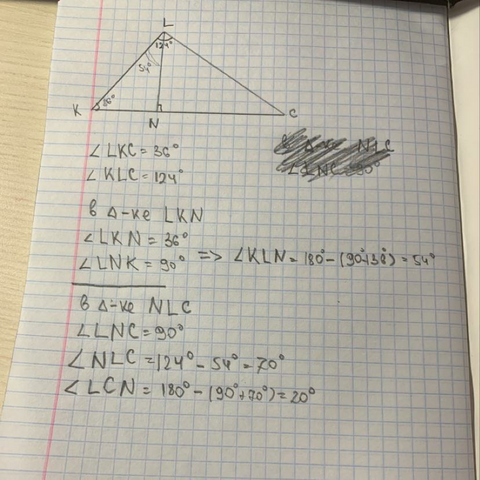 L
124°
54°
K 36° N C
∠LKC = 36°
∠KLC = 124°
в Δ-ке LKN
∠LKN = 36°
∠LNK = 90° => ∠KLN = 180° - (90°+36°) = 54°
в Δ-ке NLC
∠LNC = 90°
∠NLC = 124° - 54° = 70°
∠LCN = 180° - (90°+70°) = 20°